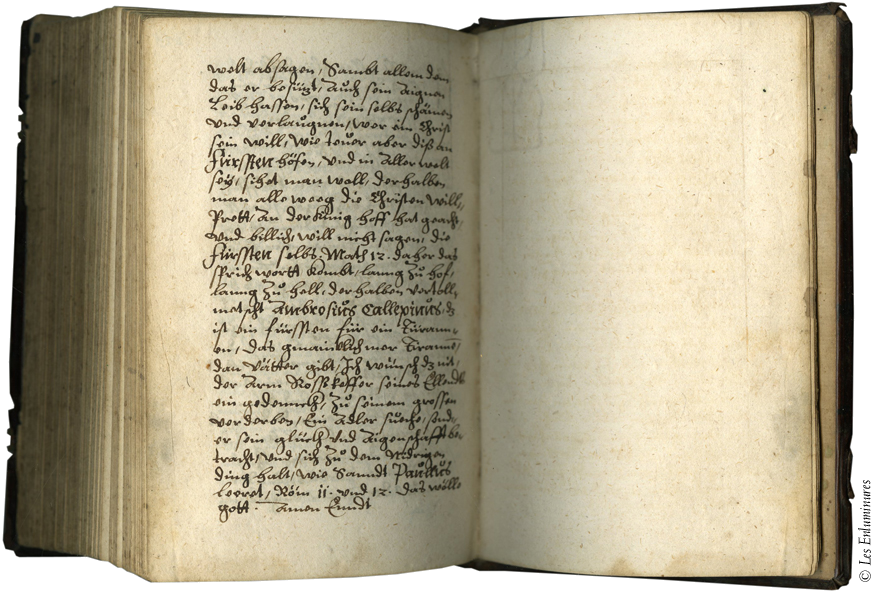 welt absagen, Sambt allem dem
das er besitzt, Auch sein Aignen
Leib hassen, sich sein selbs schämen
Vnd verlaugnen, wer ein Christ
sein will, wie teuer aber diß an
Fürssten höfen, vnd in Aller welt
seÿ, sihet man woll, derhalben
man alle weeg die Christen will
Prett, An der König hoff hat geacht,
vnd billich, will nicht sagen, die
Fürssten selbs. Math 12. daher das
sprich wortt kombt, lanng zu hof,
lanng zu hell, derhalben
Ambrosius Callepinus, dz
ist ein fürssten für ein Tÿrann
en, das gmaincklich mer Tirannē,
dan Vätter gibt, Ich wünsch dz mit,
der Arm Rosskeffer seines Ellendts
ein gedennckh, zu seinem grossen
verderben, Ein Adler sueche, sond,
er sein glückh vnd Aigenschafft be,
tracht, vnd sich zu dem Nidrigen
ding halt, wie Sanndt Paullus
leeret, Röm 11. vnd 12. das wölle
gott. Amen Enndt
© Les Enluminures